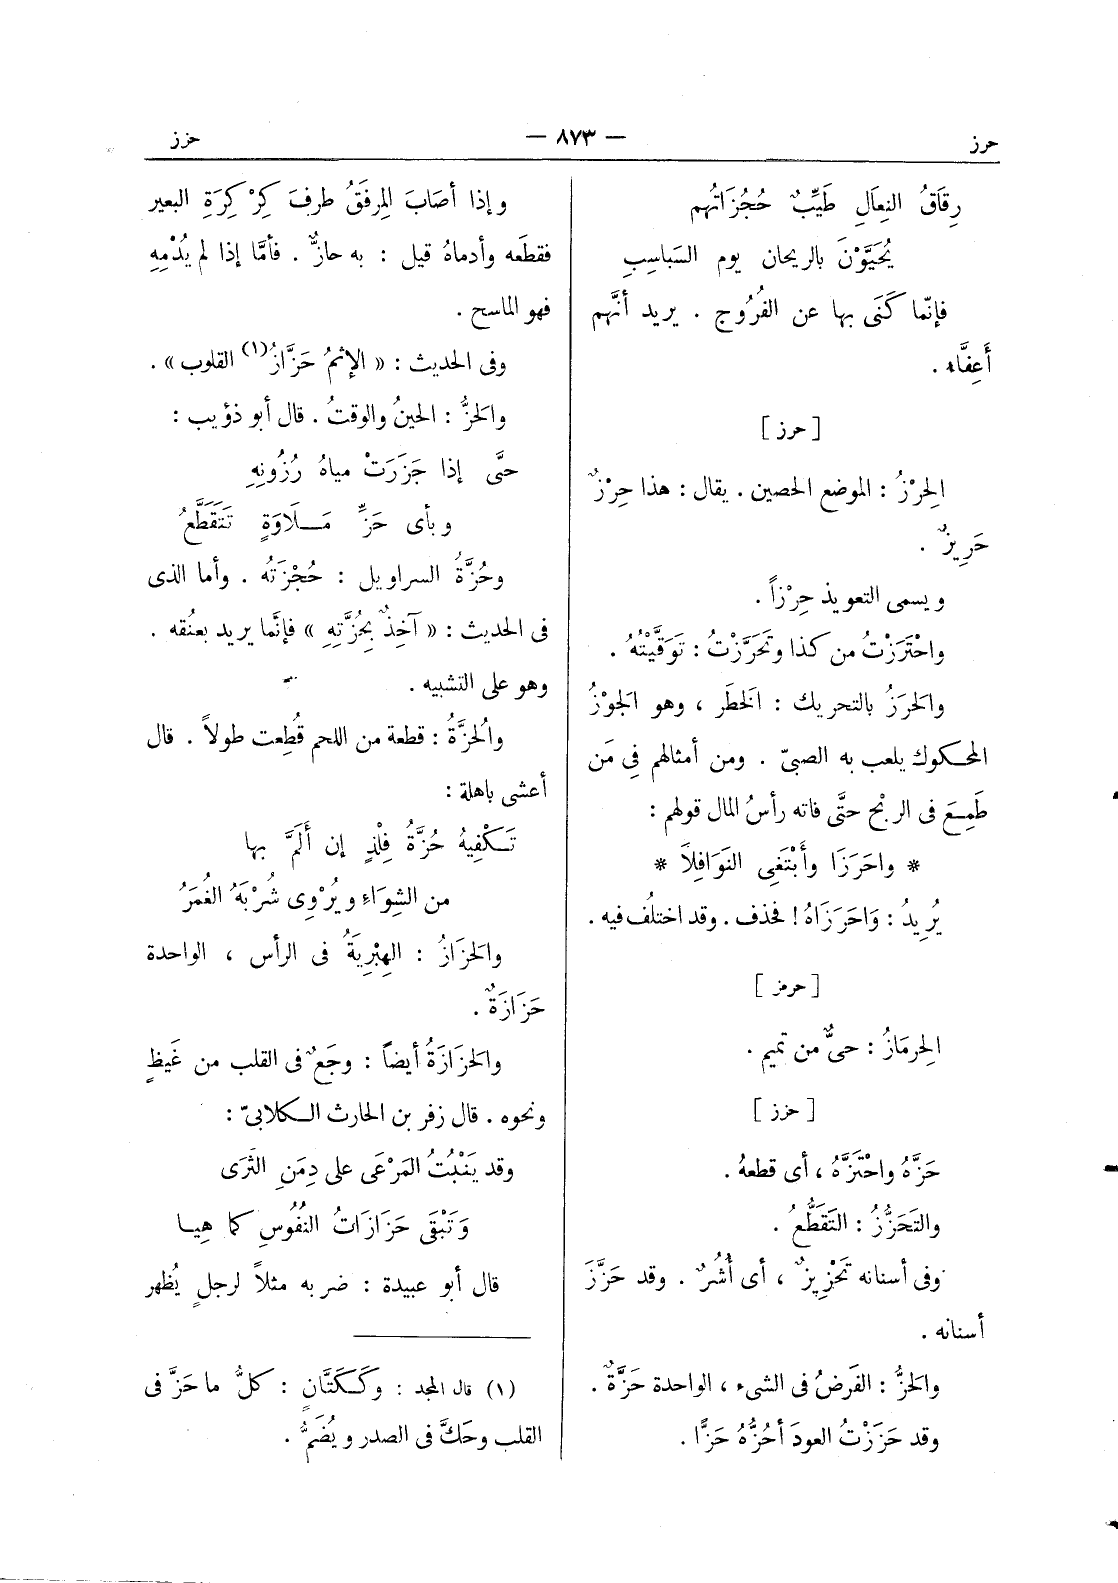 حرز
— ٨٧٣ —
حزز
رِقَاقُ النِعَالِ طَيِّبٌ حُجُزَاتُهم
يُحَيَّوْنَ بالريحان يوم السَبَاسِبِ
فإنّما كَنَى بها عن الفُرُوج . يريد أنَّهم
أَعِفَّاء .
[ حرز ]
الحِرْزُ : الموضع الحصين . يقال : هذا حِرْزٌ
حَرِيزٌ .
ويسمى التعويذ حِرْزاً .
واحْتَرَزْتُ من كذا وتَحَرَّزْتُ : تَوَقَّيْتُهُ .
والحَرَزُ بالتحريك : الخَطَر ، وهو الجَوْزُ
المحكوك يلعب به الصبىّ . ومن أمثالهم فِى مَن
طَمِعَ فى الربْح حتَّى فاته رأسُ المال قولهم :
* واحَرَزَا وأَبْتَغِى النَوَافِلَا *
يُرِيدُ : وَاحَرَزَاهُ ! فحذف . وقد اختلُف فيه .
[ حرمز ]
الحِرمَازُ : حىٌّ من تميم .
[ حزز ]
حَزَّهُ واحْتَزَّهُ ، أى قطعهُ .
والتَحَزُّزُ : التَقَطُّعُ .
وفى أسنانه تَحْزِيزٌ ، أى أُشُرٌ . وقد حَزَّزَ
أسنانه .
والحَزُّ : الفَرضُ فى الشىء ، الواحدة حَزَّةٌ .
وقد حَزَزْتُ العودَ أحُزُّهُ حَزًّا .
وإذا أصَابَ المِرفَقُ طرفَ كِرْكِرَةِ البعير
فقطَعه وأدماهُ قيل : به حازٌّ . فأمَّا إذا لم يُدْمِهِ
فهو الماسح .
وفى الحديث : « الإثمُ حَزَّازُ(١) القلوب » .
والحَزُّ : الحينُ والوقتُ . قال أبو ذؤيب :
حتَّى إذا جَزَرَتْ مياهُ رُزُونِهِ
وبأى حَزِّ مَلَاوَةٍ تَتَقَطَّعُ
وحُزَّةُ السراويل : حُجْزَتُه . وأما الذى
فى الحديث : « آخِذٌ بِحُزَّتِهِ » فإنَّما يريد بعنُقه .
وهو على التشبيه .
والحُزَّةُ : قطعة من اللحم قُطِعت طولاً . قال
أعشى باهلة :
تَكْفِيهُ حُزَّةُ فِلْذٍ إن أَلَمَّ بها
من الشِوَاءِ ويُرْوِى شُرْبَهُ الغُمَرُ
والحَزَازُ : الهِبْرِيَةُ فى الرأس ، الواحدة
حَزَازَةٌ .
والحَزَازَةُ أيضاً : وجَعٌ فى القلب من غَيظٍ
ونحوه . قال زفر بن الحارث الكلابىّ :
وقد يَنْبُتُ المَرْعَى على دِمَنِ الثَرَى
وَتَبْقَى حَزَازَاتُ النُفُوسِ كما هِيا
قال أبو عبيدة : ضربه مثلاً لرجلٍ يُظهر
(١) قال المجد : وكَكَتَّانٍ : كلُّ ما حَزَّ فى
القلب وحَكَّ فى الصدر ويُضَمُّ .